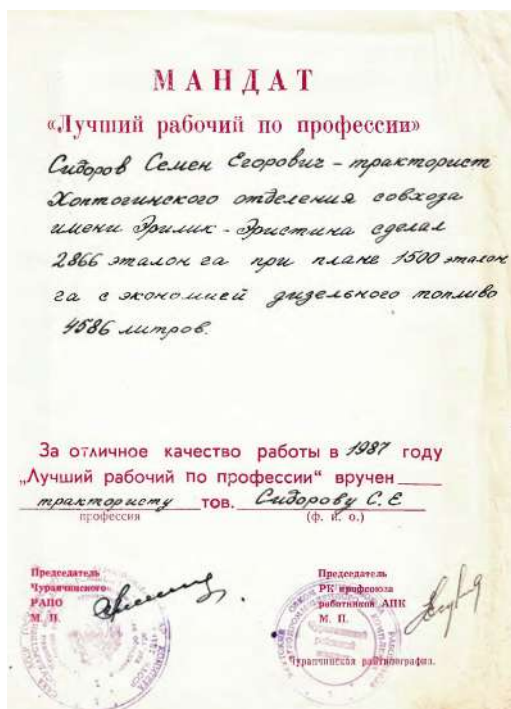 МАНДАТ
«Лучший рабочий по профессии»
Сидоров Семен Егорович – тракторист
Хоптогинского отделения совхоза
имени Эрилик – Эристина сделал
2866 эталон га при плане 1500 эталон
га с экономией дизельного топливо
4586 литров.
За отличное качество работы в 1987 году
„Лучший рабочий по профессии“ вручен
трактористу тов. Сидорову С. Е
профессия (ф. и. о.)
Председатель
Чурапчинского
РАПО
М. П.
Председатель
РК профсоюза
работников АПК
М. П.
Чурапчинская райтипография.